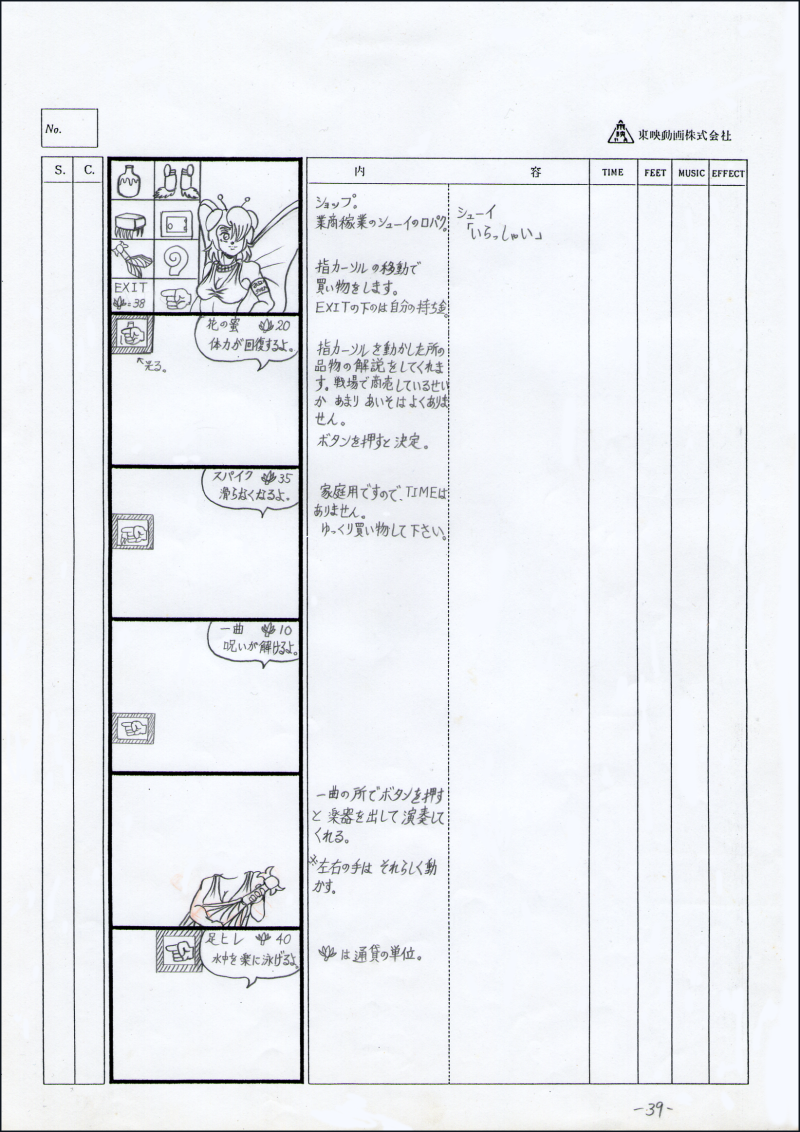 No.
東映動画株式会社
S. C. 内 容 TIME FEET MUSIC EFFECT
EXIT
=38
ショップ。
業商稼業のシューイの口パク。
シューイ
「いらっしゃい」
指カーソルの移動で
買い物をします。
EXITの下のは自分の持ち金。
花の蜜 20
体力が回復するよ。
↖光る。
指カーソルを動かした所の
品物の解説をしてくれま
す。戦場で商売しているせい
か あまり あいそはよくありま
せん。
ボタンを押すと決定。
スパイク 35
滑らなくなるよ。
家庭用ですので、TIMEは
ありません。
ゆっくり買い物して下さい。
一曲 10
呪いが解けるよ。
一曲の所でボタンを押す
と 楽器を出して演奏して
くれる。
※左右の手は それらしく動
かす。
足ヒレ 40
水中を楽に泳げるよ
は通貨の単位。
-39-